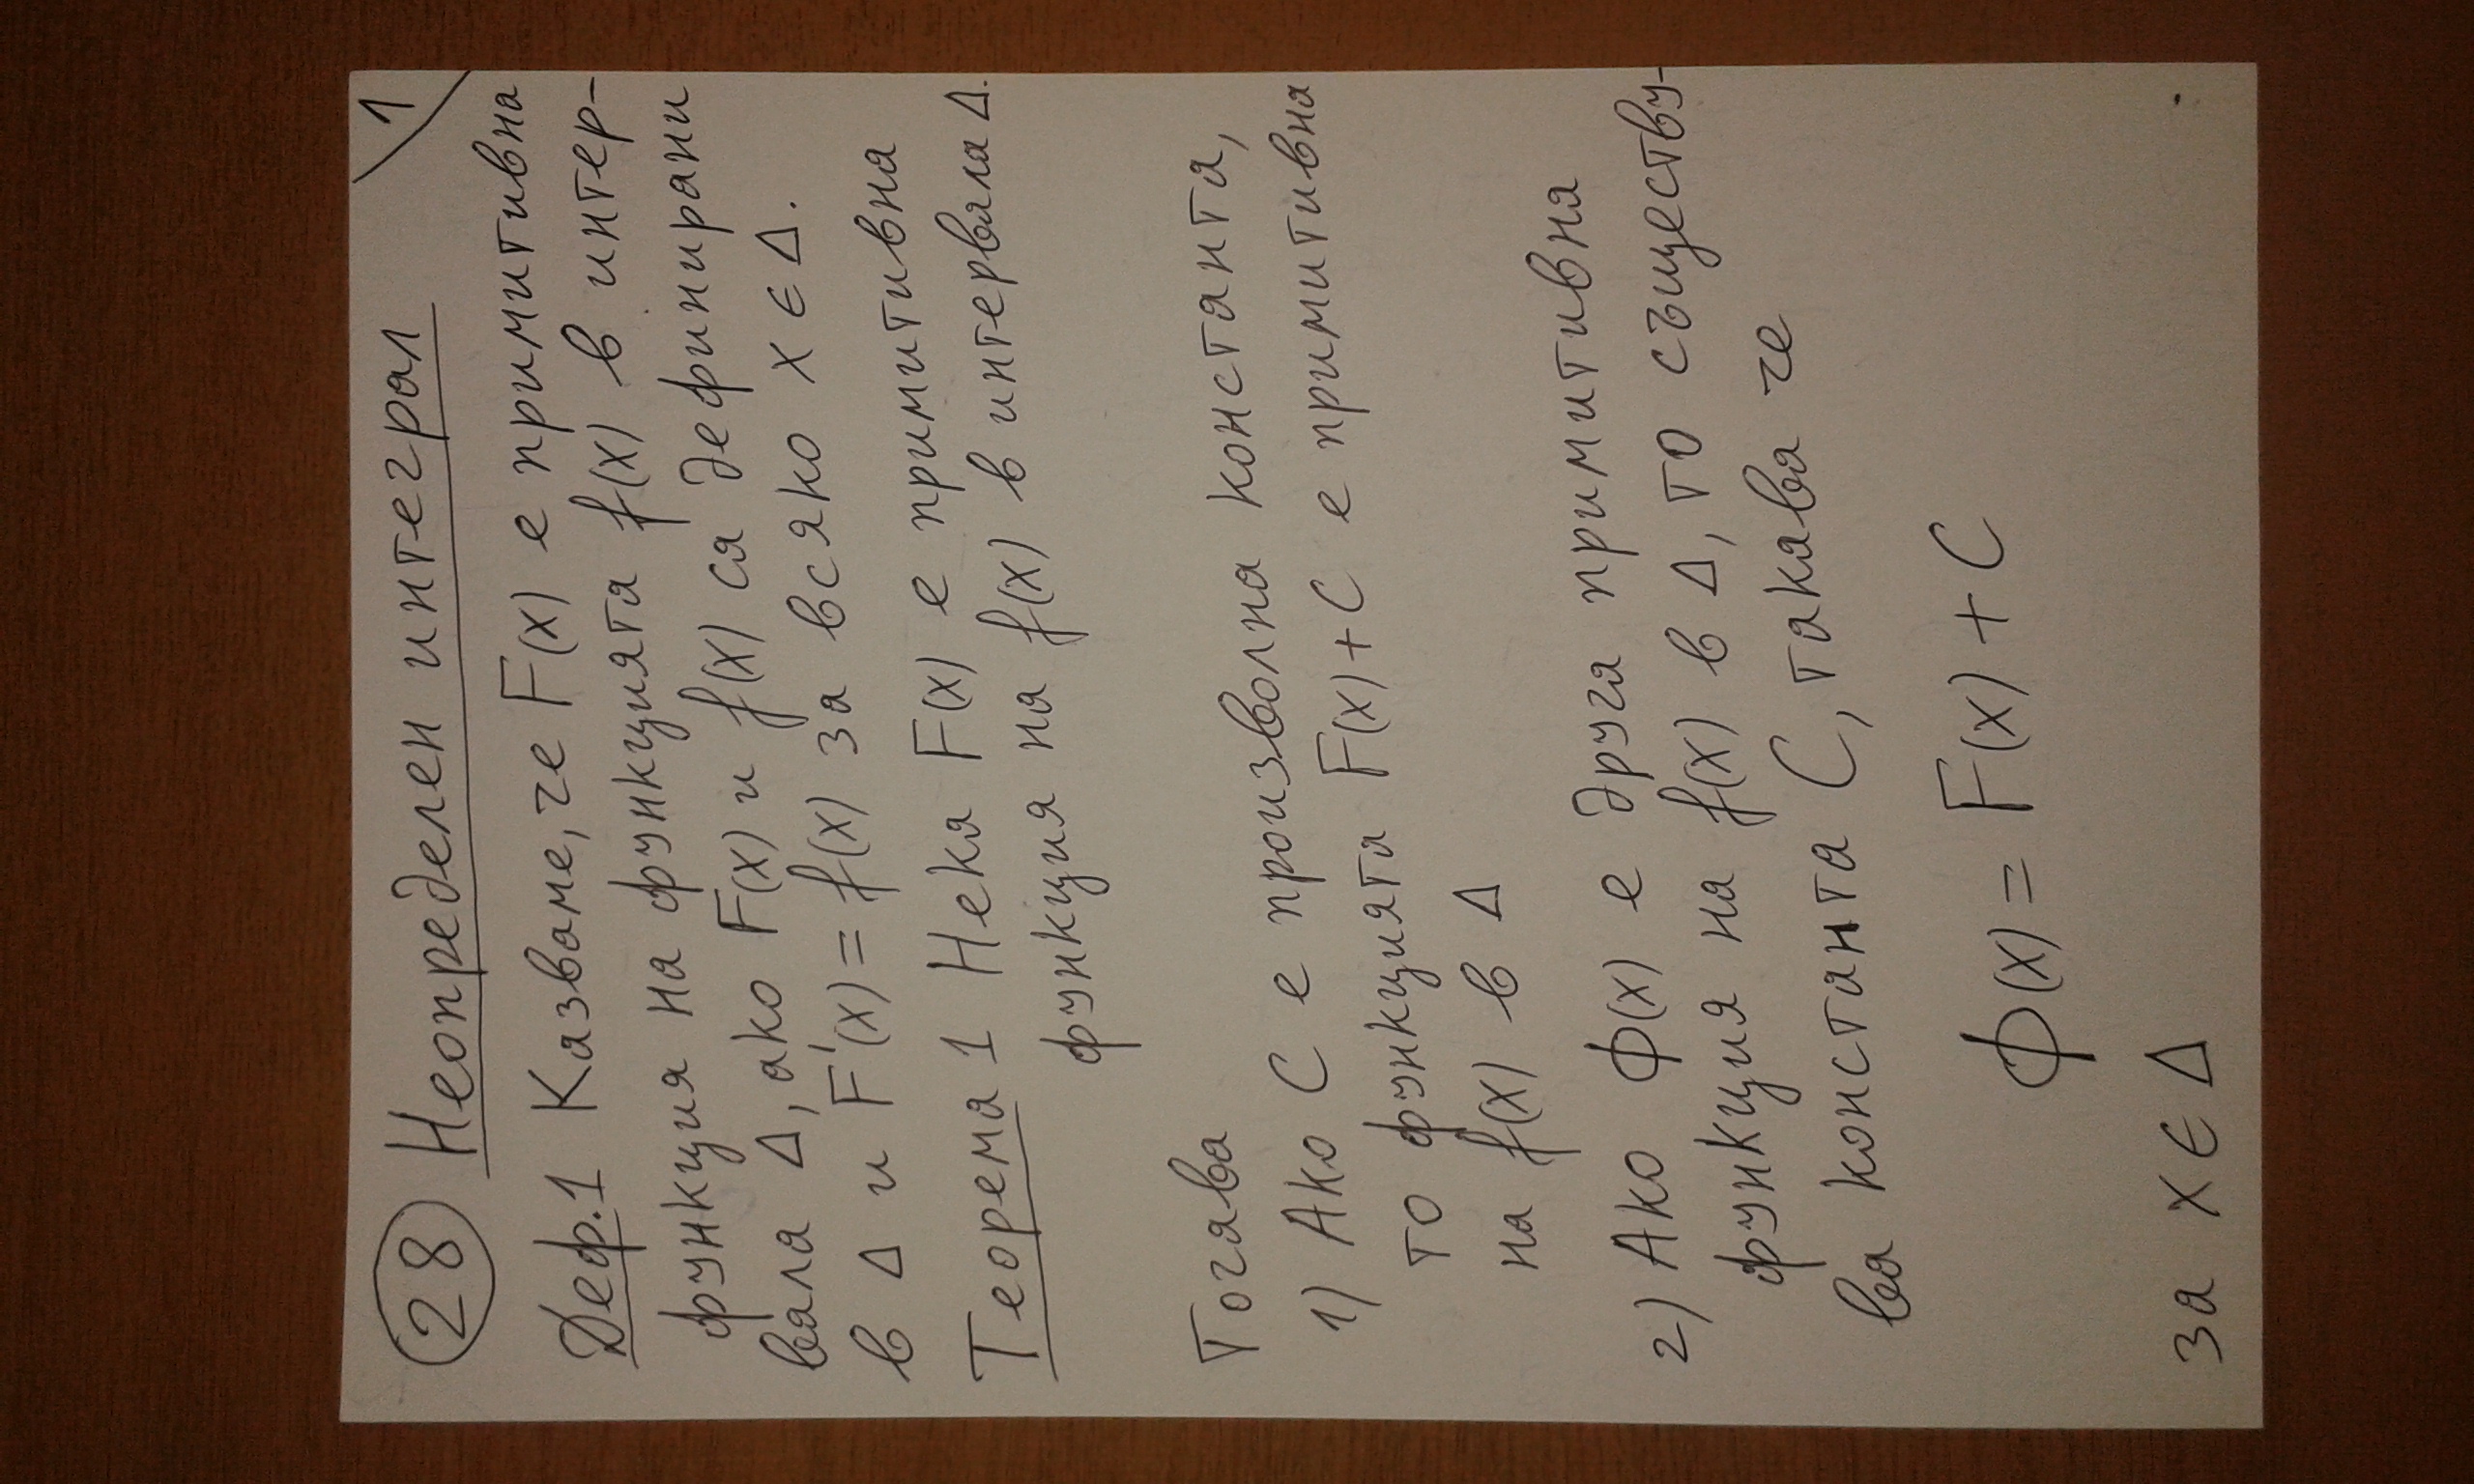 28 Неопределен интеграл 1
Деф.1 Казваме, че F(x) е примитивна
функция на функцията f(x) в интер-
вала Δ, ако F(x) и f(x) са дефинирани
в Δ и F'(x) = f(x) за всяко x ∈ Δ.
Теорема 1 Нека F(x) е примитивна
функция на f(x) в интервала Δ.
Тогава
1) Ако C е произволна константа,
то функцията F(x)+C е примитивна
на f(x) в Δ
2) Ако Φ(x) е друга примитивна
функция на f(x) в Δ, то съществу-
ва константа C, такава че
Φ(x) = F(x) + C
за x ∈ Δ